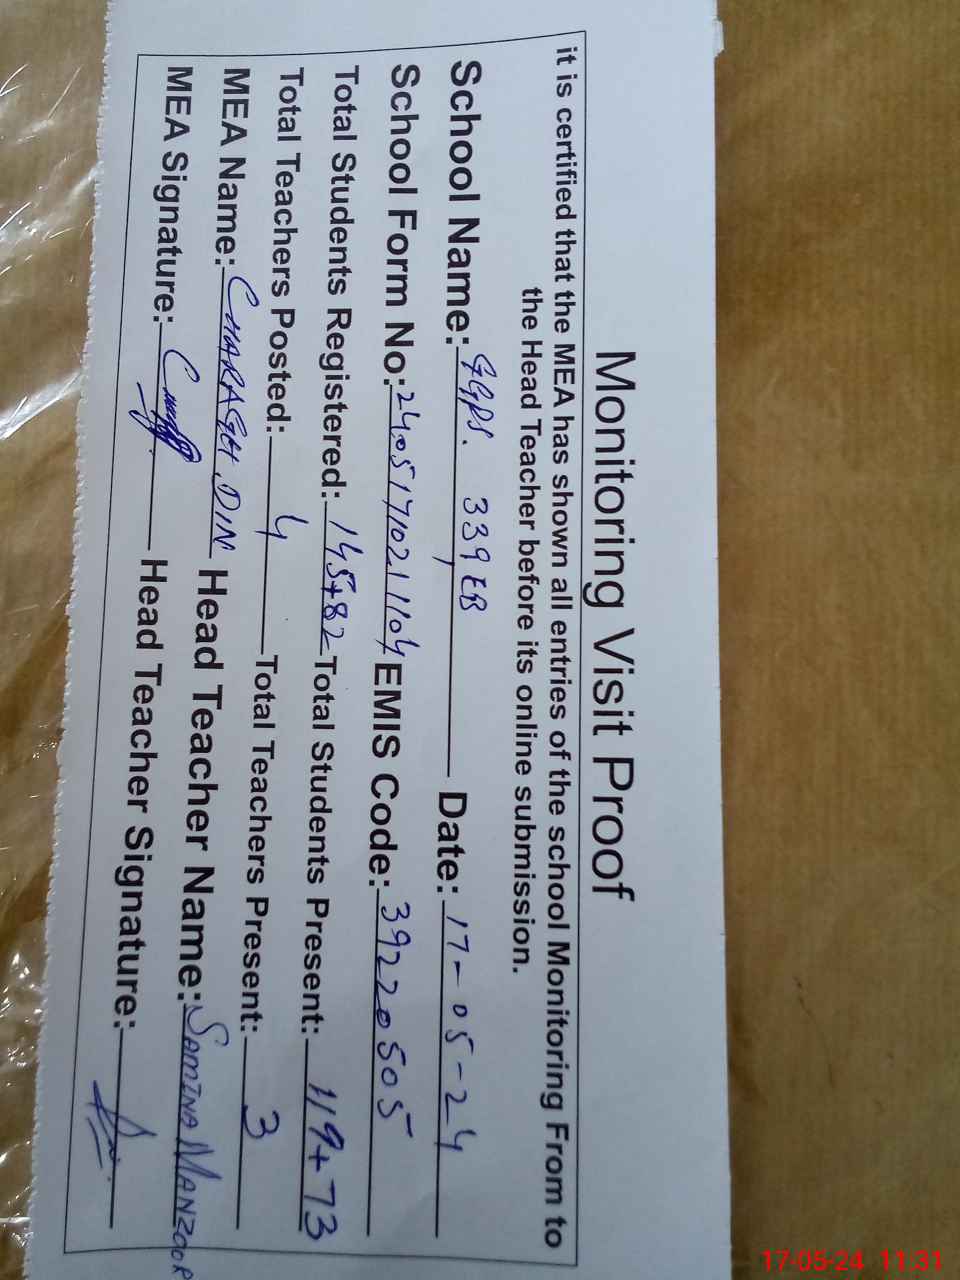 Monitoring Visit Proof
it is certified that the MEA has shown all entries of the school Monitoring From to
the Head Teacher before its online submission.
School Name: GGPS. 339 EB Date: 17-05-24
School Form No: 24051710211104 EMIS Code: 39220505
Total Students Registered: 145+82 Total Students Present: 119+73
Total Teachers Posted: 4 Total Teachers Present: 3
MEA Name: CHARAGH DIN Head Teacher Name: SAMINA MANZOOR
MEA Signature: Head Teacher Signature:
17-05-24 11:31